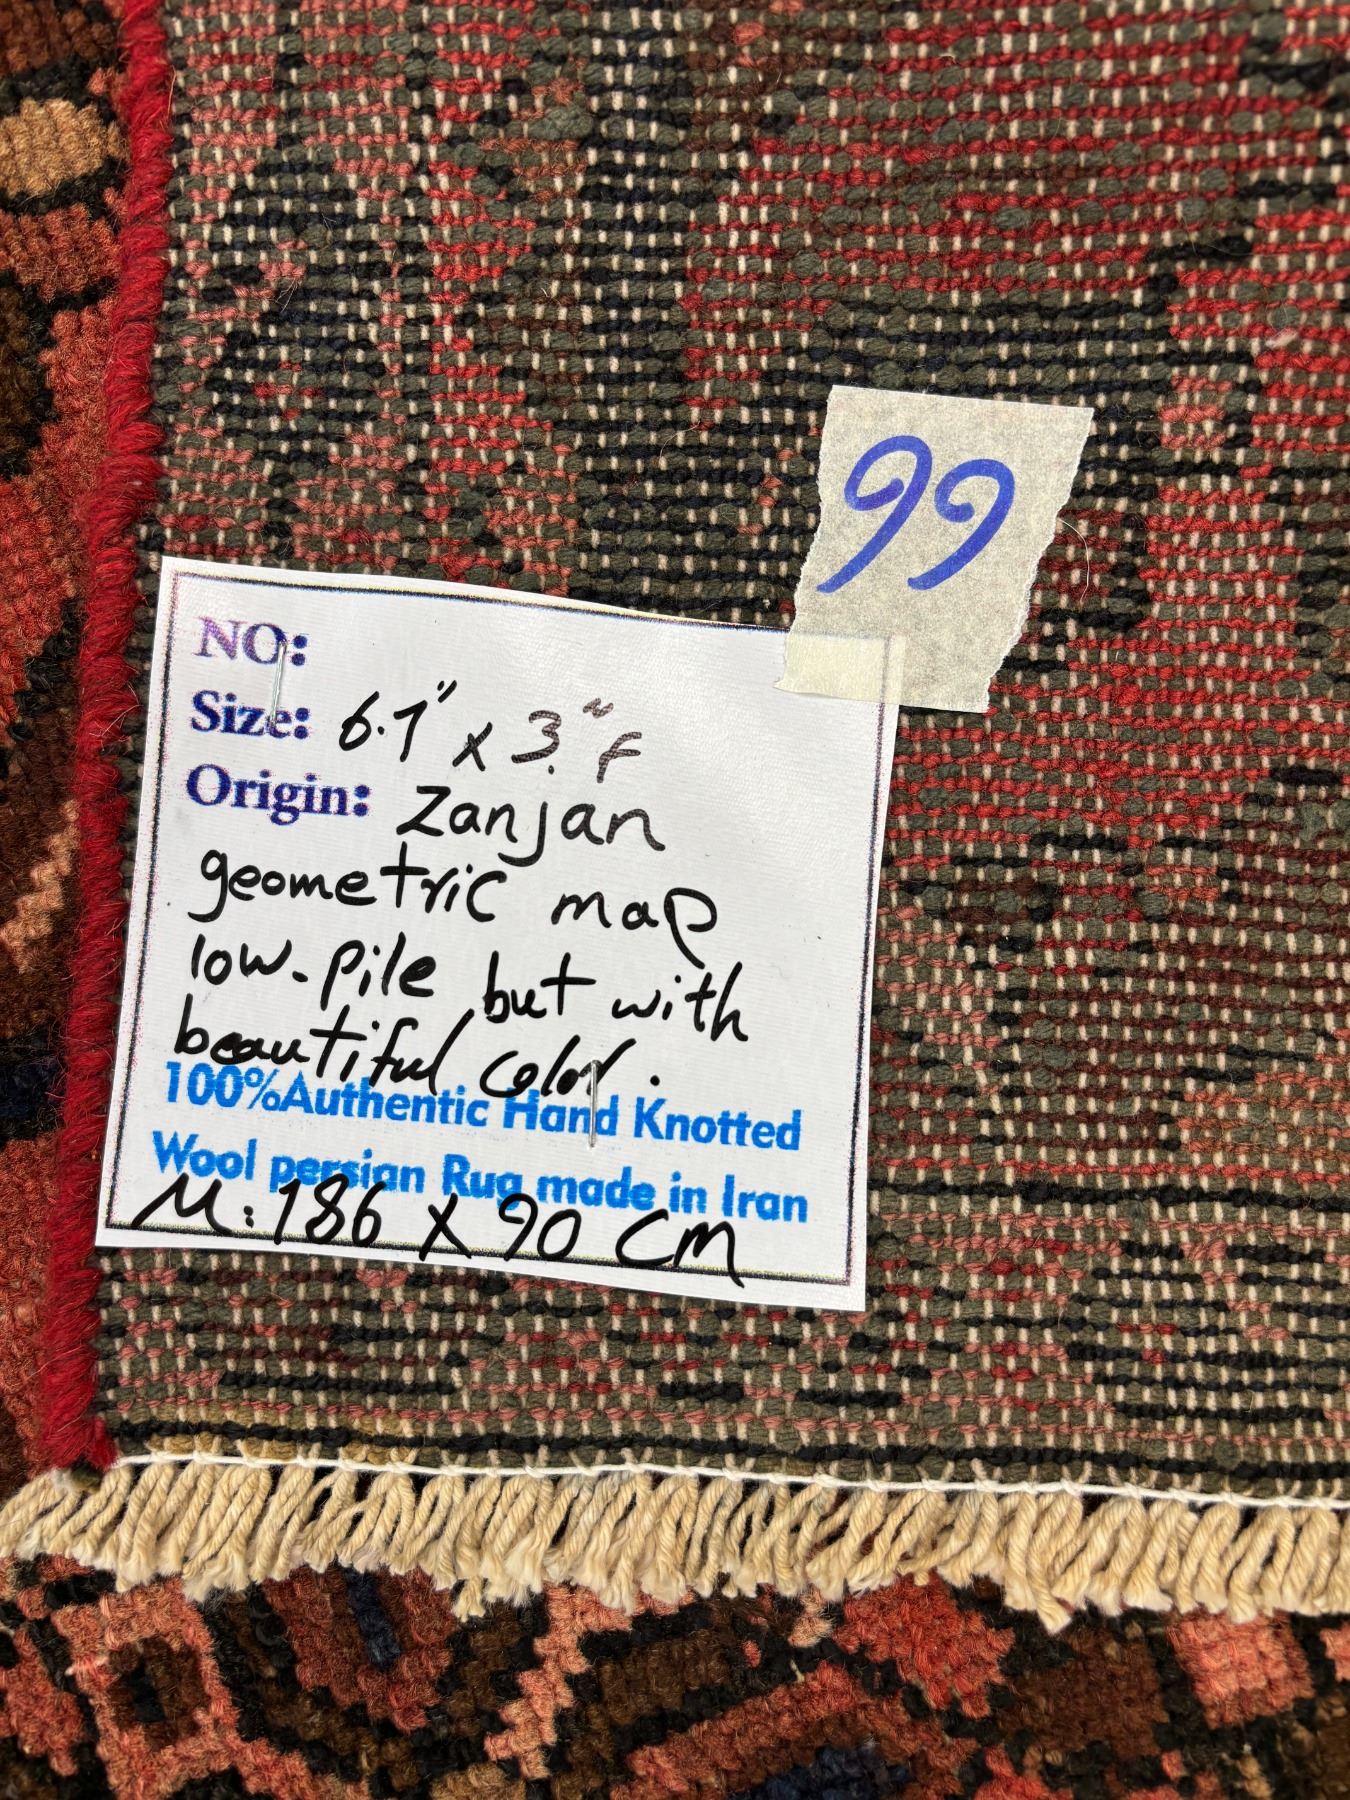 99
NO:
Size: 6.1" x 3." F
Origin: Zanjan
geometric map
low-pile but with
beautiful color.
100%Authentic Hand Knotted
Wool persian Rug made in Iran
M: 186 x 90 CM